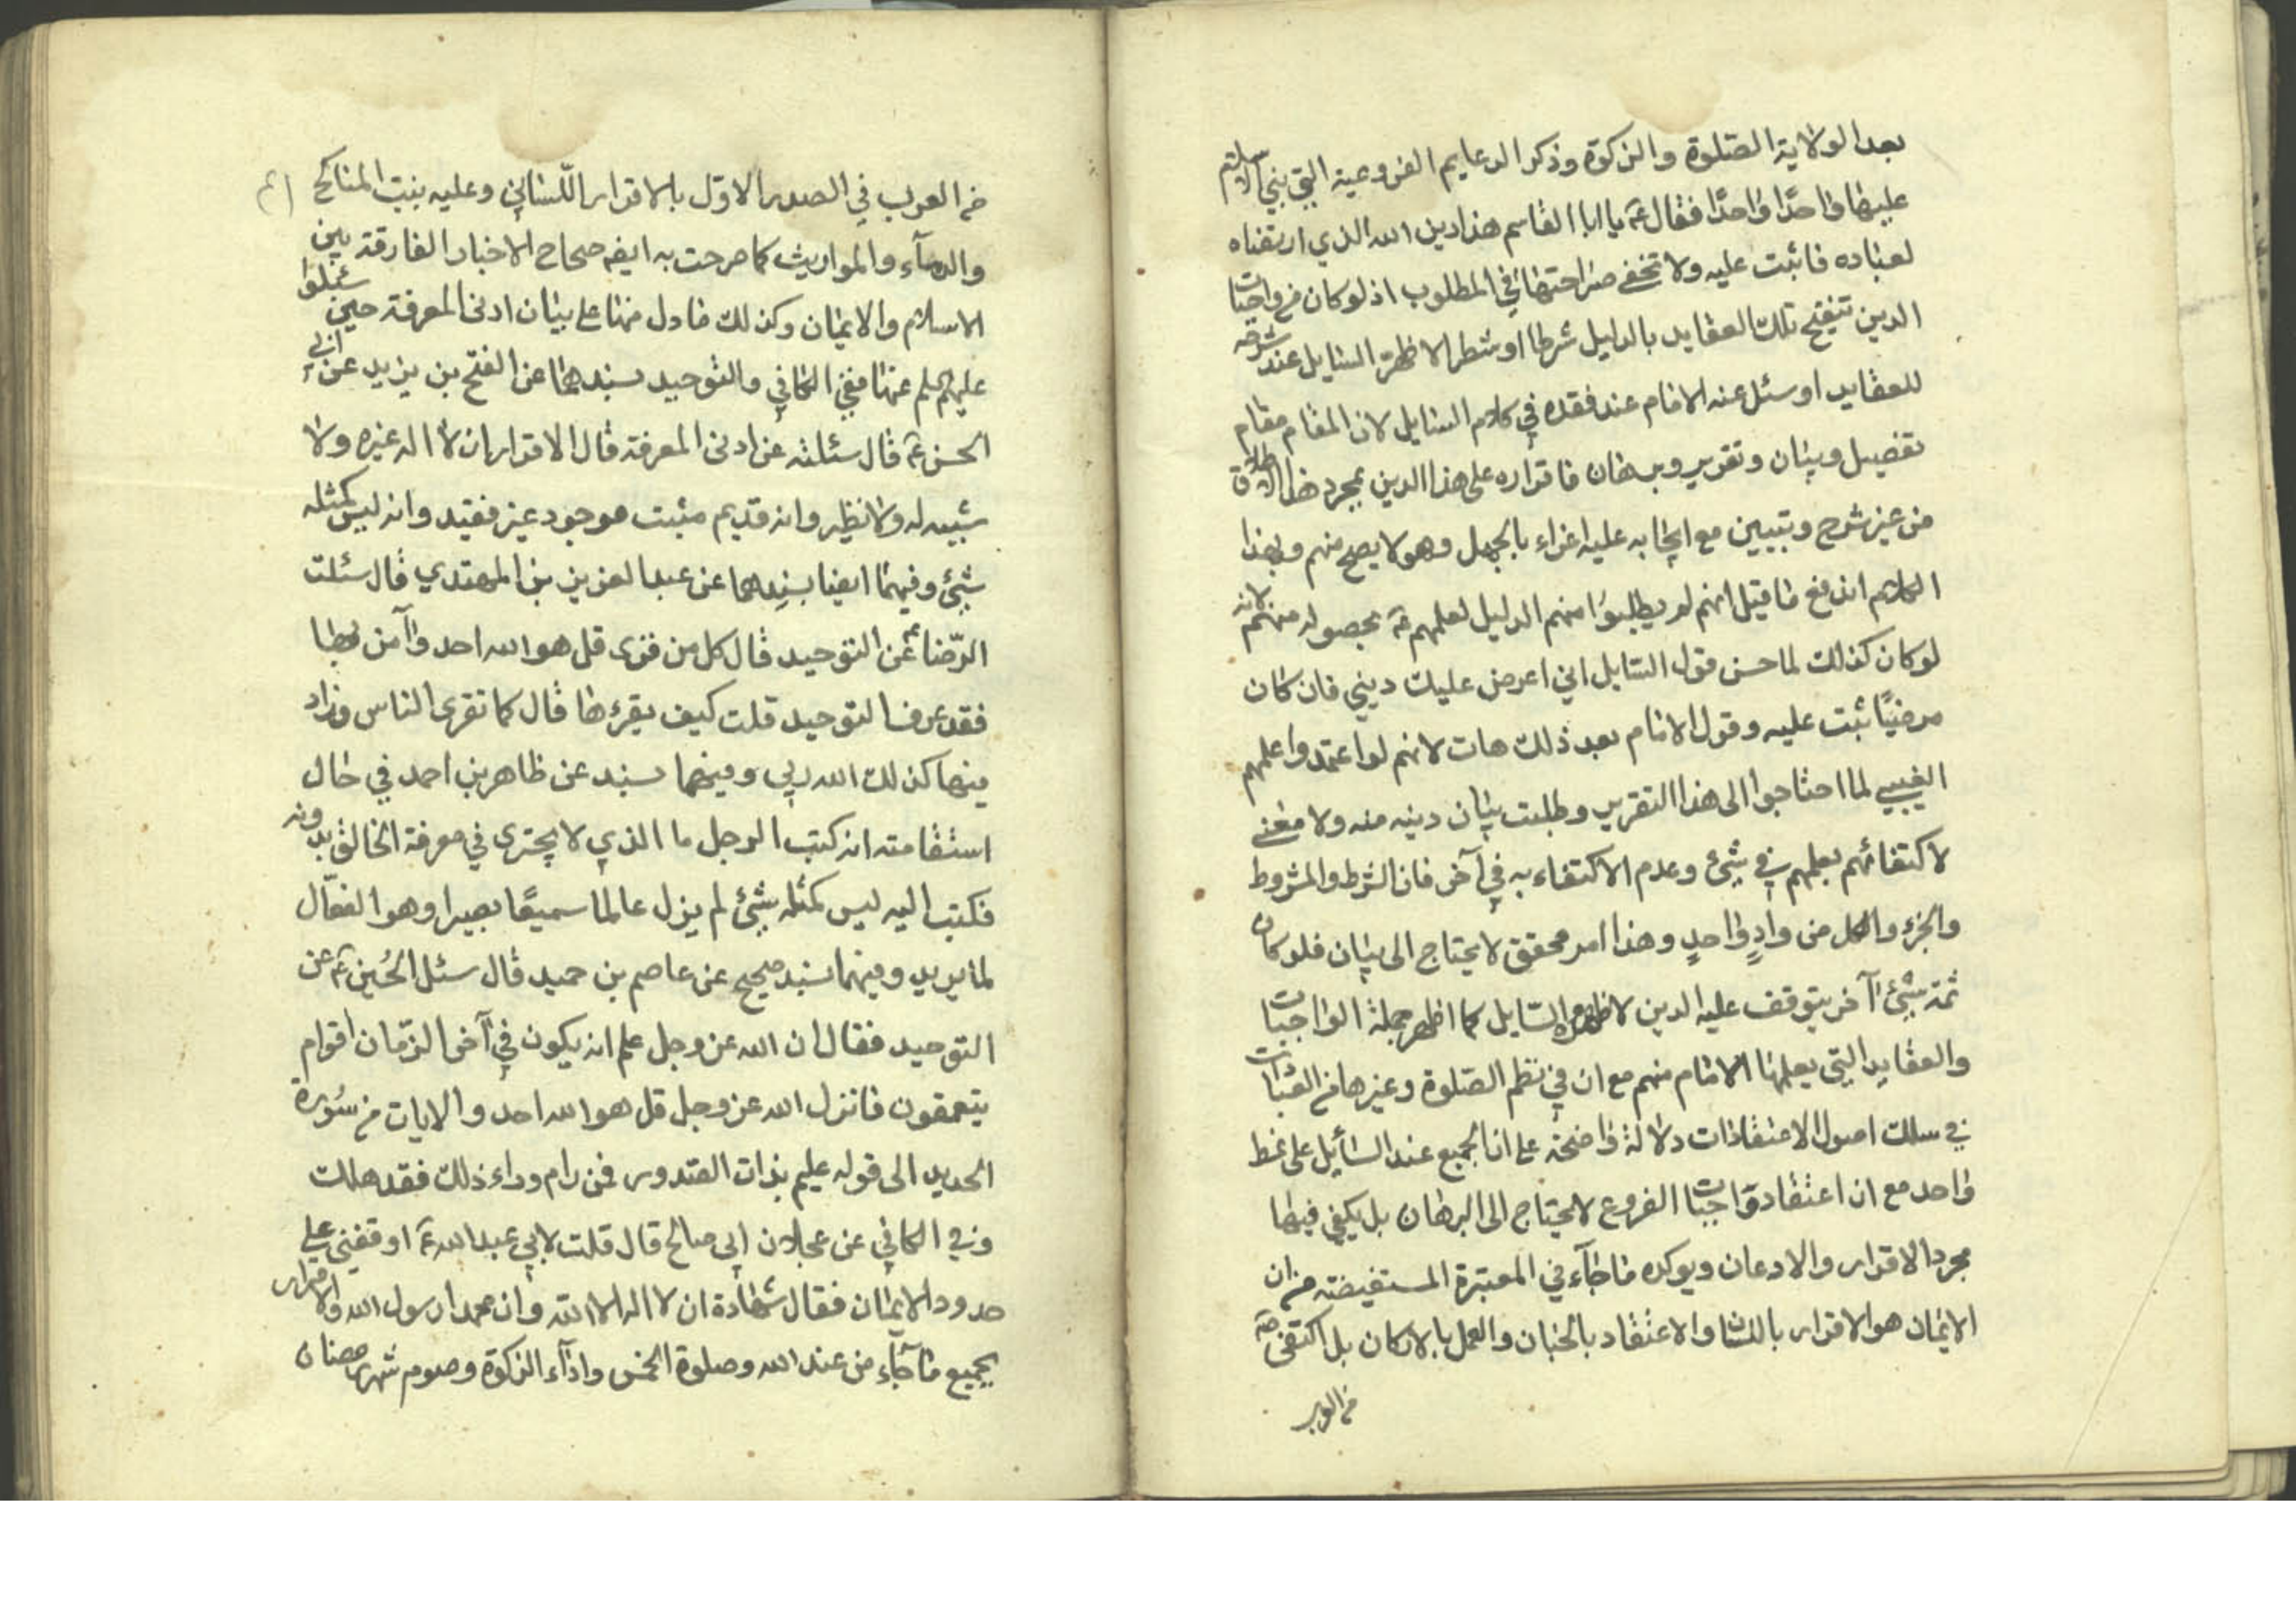 بعد الولاية الصلوة والزكوة وذكر الدعايم الفروعية التي بني الاسلام
عليها واحدًا واحدًا فقال عۤ يا ابا القاسم هذا دين الله الذي ارتضاه
لعباده فاثبت عليه ولا تخفى صراحتها في المطلوب اذ لو كان من واجبات
الدين تنقيح تلك العقايد بالدليل شرطا او شطرا لاظهرّ السايل عند شرحه
للعقايد او سئل عنه الامام عند فقده في كلام السايل لان المقام مقام
تفصيل وبيان وتقرير وبرهان فاقراره على هذا الدين بمجرد هذا الاطلاق
من غير شرح وتبيين مع ايجابه عليه اغراء بالجهل وهو لا يصح منهم وبهذا
الكلام اندفع ما قيل انهم لم يطلبوا منهم الدليل لعلمهم عۤ بحصوله منهم لانه
لو كان كذلك لما حسن قول السايل اني اعرض عليك ديني فان كان
مرضيًا ثبت عليه وقول الامام بعد ذلك هات لانهم لو اعتمدوا علمهم
الغيبي لما احتاجوا الى هذا التقرير وطلبت بيان دينه منه ولا معنى
لاكتفائهم بعلمهم في شيئ وعدم الاكتفاء به في آخر فان الشرط والمشروط
والجزء والكل من وادٍ واحدٍ وهذا امر محقق لا يحتاج الى بيان فلو كان
ثمة شيئ آخر يتوقف عليه الدين لاظهره السّايل كما اظهر جملة الواجبات
والعقايد التي يعلمها الامام منهم مع ان في نظم الصّلوة وغيرها من العبادات
في سلك اصول الاعتقادات دلالة واضحة على ان الجميع عند السائل على نمط
واحد مع ان اعتقاد واجبات الفروع لا يحتاج الى البرهان بل يكفي فيها
مجرد الاقرار والاذعان ويوكده ما جآء في المعتبرة المستفيضة من ان
الايمان هو الاقرار باللسان والاعتقاد بالجنان والعمل بالاركان بل اكتفى صۤ
من العرب
من العرب في الصدر الاوّل بالاقرار اللّساني وعليه بنيت المناكح
والدمآء والمواريث كما صرحت به ايضا صحاح الاخبار الفارقة بين
الاسلام والايمان وكذلك ما دل منها على بيان ادنى المعرفة حين سئلوا
عليهم السلم عنها ففي الكافي والتوحيد بسندهما عن الفتح بن يزيد عن ابي
الحسن عۤ قال سئلته عن ادنى المعرفة قال الاقرار بان لا اله غيره ولا
شبيه له ولا نظير وانه قديم مثبت موجود غير فقيد وانه ليس كمثله
شيئ وفيهما ايضا بسندهما عن عبد العزيز بن المهتدي قال سئلت
الرّضا عۤ عن التوحيد قال كل من قرى قل هو الله احد وآمن بها
فقد عرف التوحيد قلت كيف يقرءها قال كما تقرى الناس وزاد
فيها كذلك الله ربي وفيهما بسند عن طاهر بن احمد في حال
استقامته انه كتب الرجل ما الذي لا يجترى في معرفة الخالق بدونه
فكتب اليه ليس كمثله شيئ لم يزل عالما سميعًا بصيرا وهو الفعّال
لما يريد وفيهما بسند صحيح عن عاصم بن حميد قال سئل الحُسين عۤ عن
التوحيد فقال ان الله عز وجل علم انه يكون في آخر الزّمان اقوام
يتعمقون فانزل الله عز وجل قل هو الله احد والايات من سُورة
الحديد الى قوله عليم بذات الصدور فمن رام وراء ذلك فقد هلك
وفي الكافي عن عجلان ابي صالح قال قلت لابي عبد الله عۤ اوقفني على
حدود الايمان فقال شهادة ان لا اله الا الله وان محمدا رسول الله والاقرار
بجميع ما جآء من عند الله وصلوة الخمس واداء الزكوة وصوم شهر رمضان